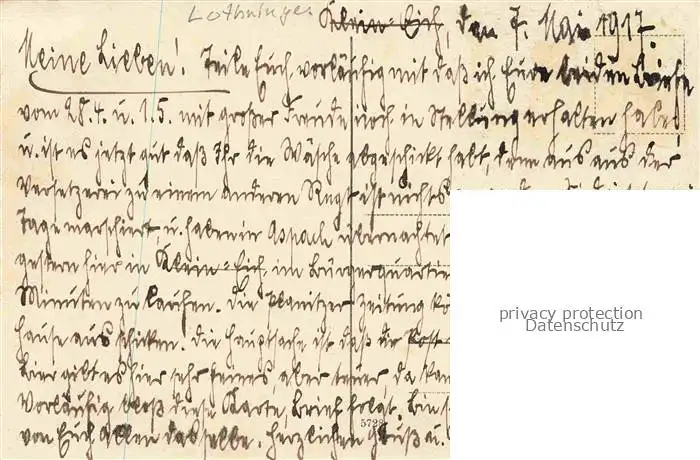 Lothringen
Klein-Eich, den 7. Mai 1917.
Meine Lieben! Teile Euch vorläufig mit daß ich Eure beiden Briefe
vom 28.4. u. 1.5. mit großer Freude noch in Stellung erhalten habe,
u. ist es jetzt gut daß Ihr die Wäsche abgeschickt habt, denn aus aus der
Versetzerei zu einem anderen Regt ist nichts
Tage marschiert, u. haben in Aspach übernachtet
gestern hier in Klein-Eich, im Bürgerquartie
Minuten zu laufen. Die Planitzer Zeitung kö
hause aus schicken. Die Hauptsache ist daß die Post
Bier gibt es hier sehr feines aber teuer, da kan
Vorläufig bloß diese Karte, Brief folgt. Bin
von Euch allen dasselbe. Herzlichen Gruß u.
5728
privacy protection
Datenschutz